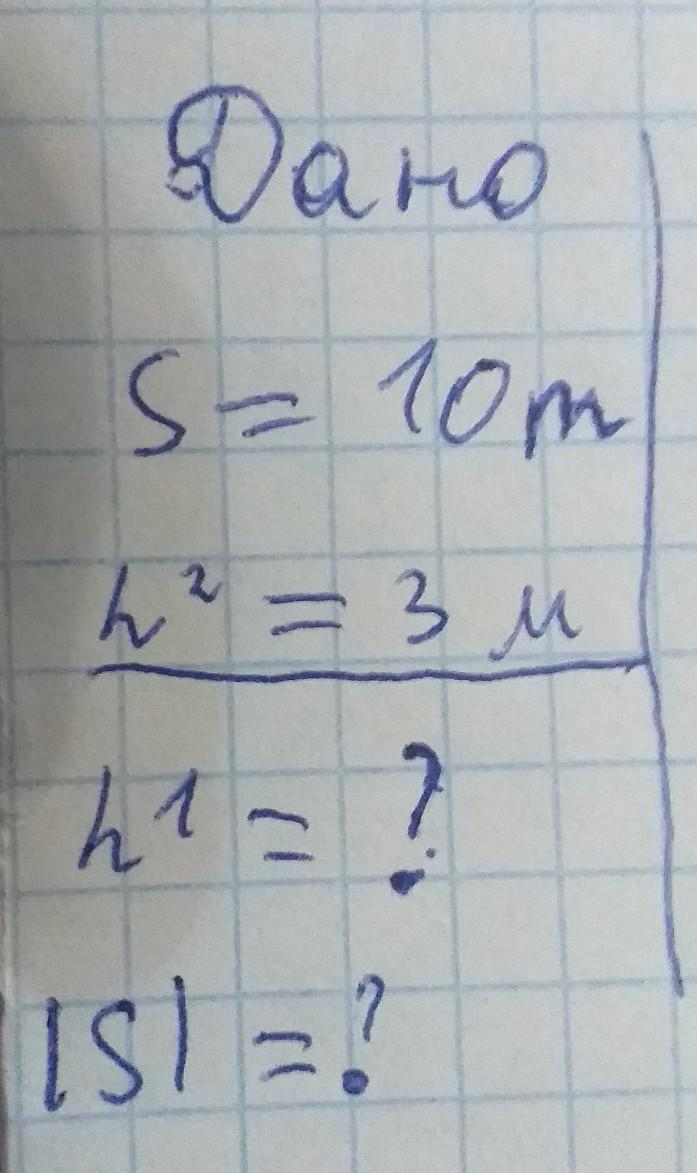 Дано
S = 10m
h² = 3 м
h¹ = ?
|S| = ?